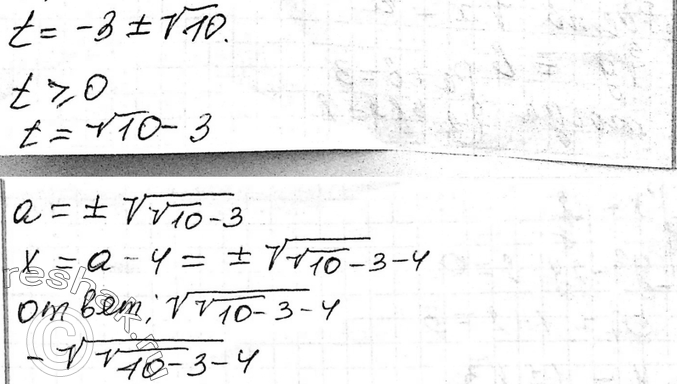 t = -3 ± √10.
t ⩾ 0
t = √10 - 3
a = ± √(√10 - 3)
x = a - 4 = ± √(√10 - 3) - 4
ответ: √(√10 - 3) - 4
- √(√10 - 3) - 4
reshak.ru